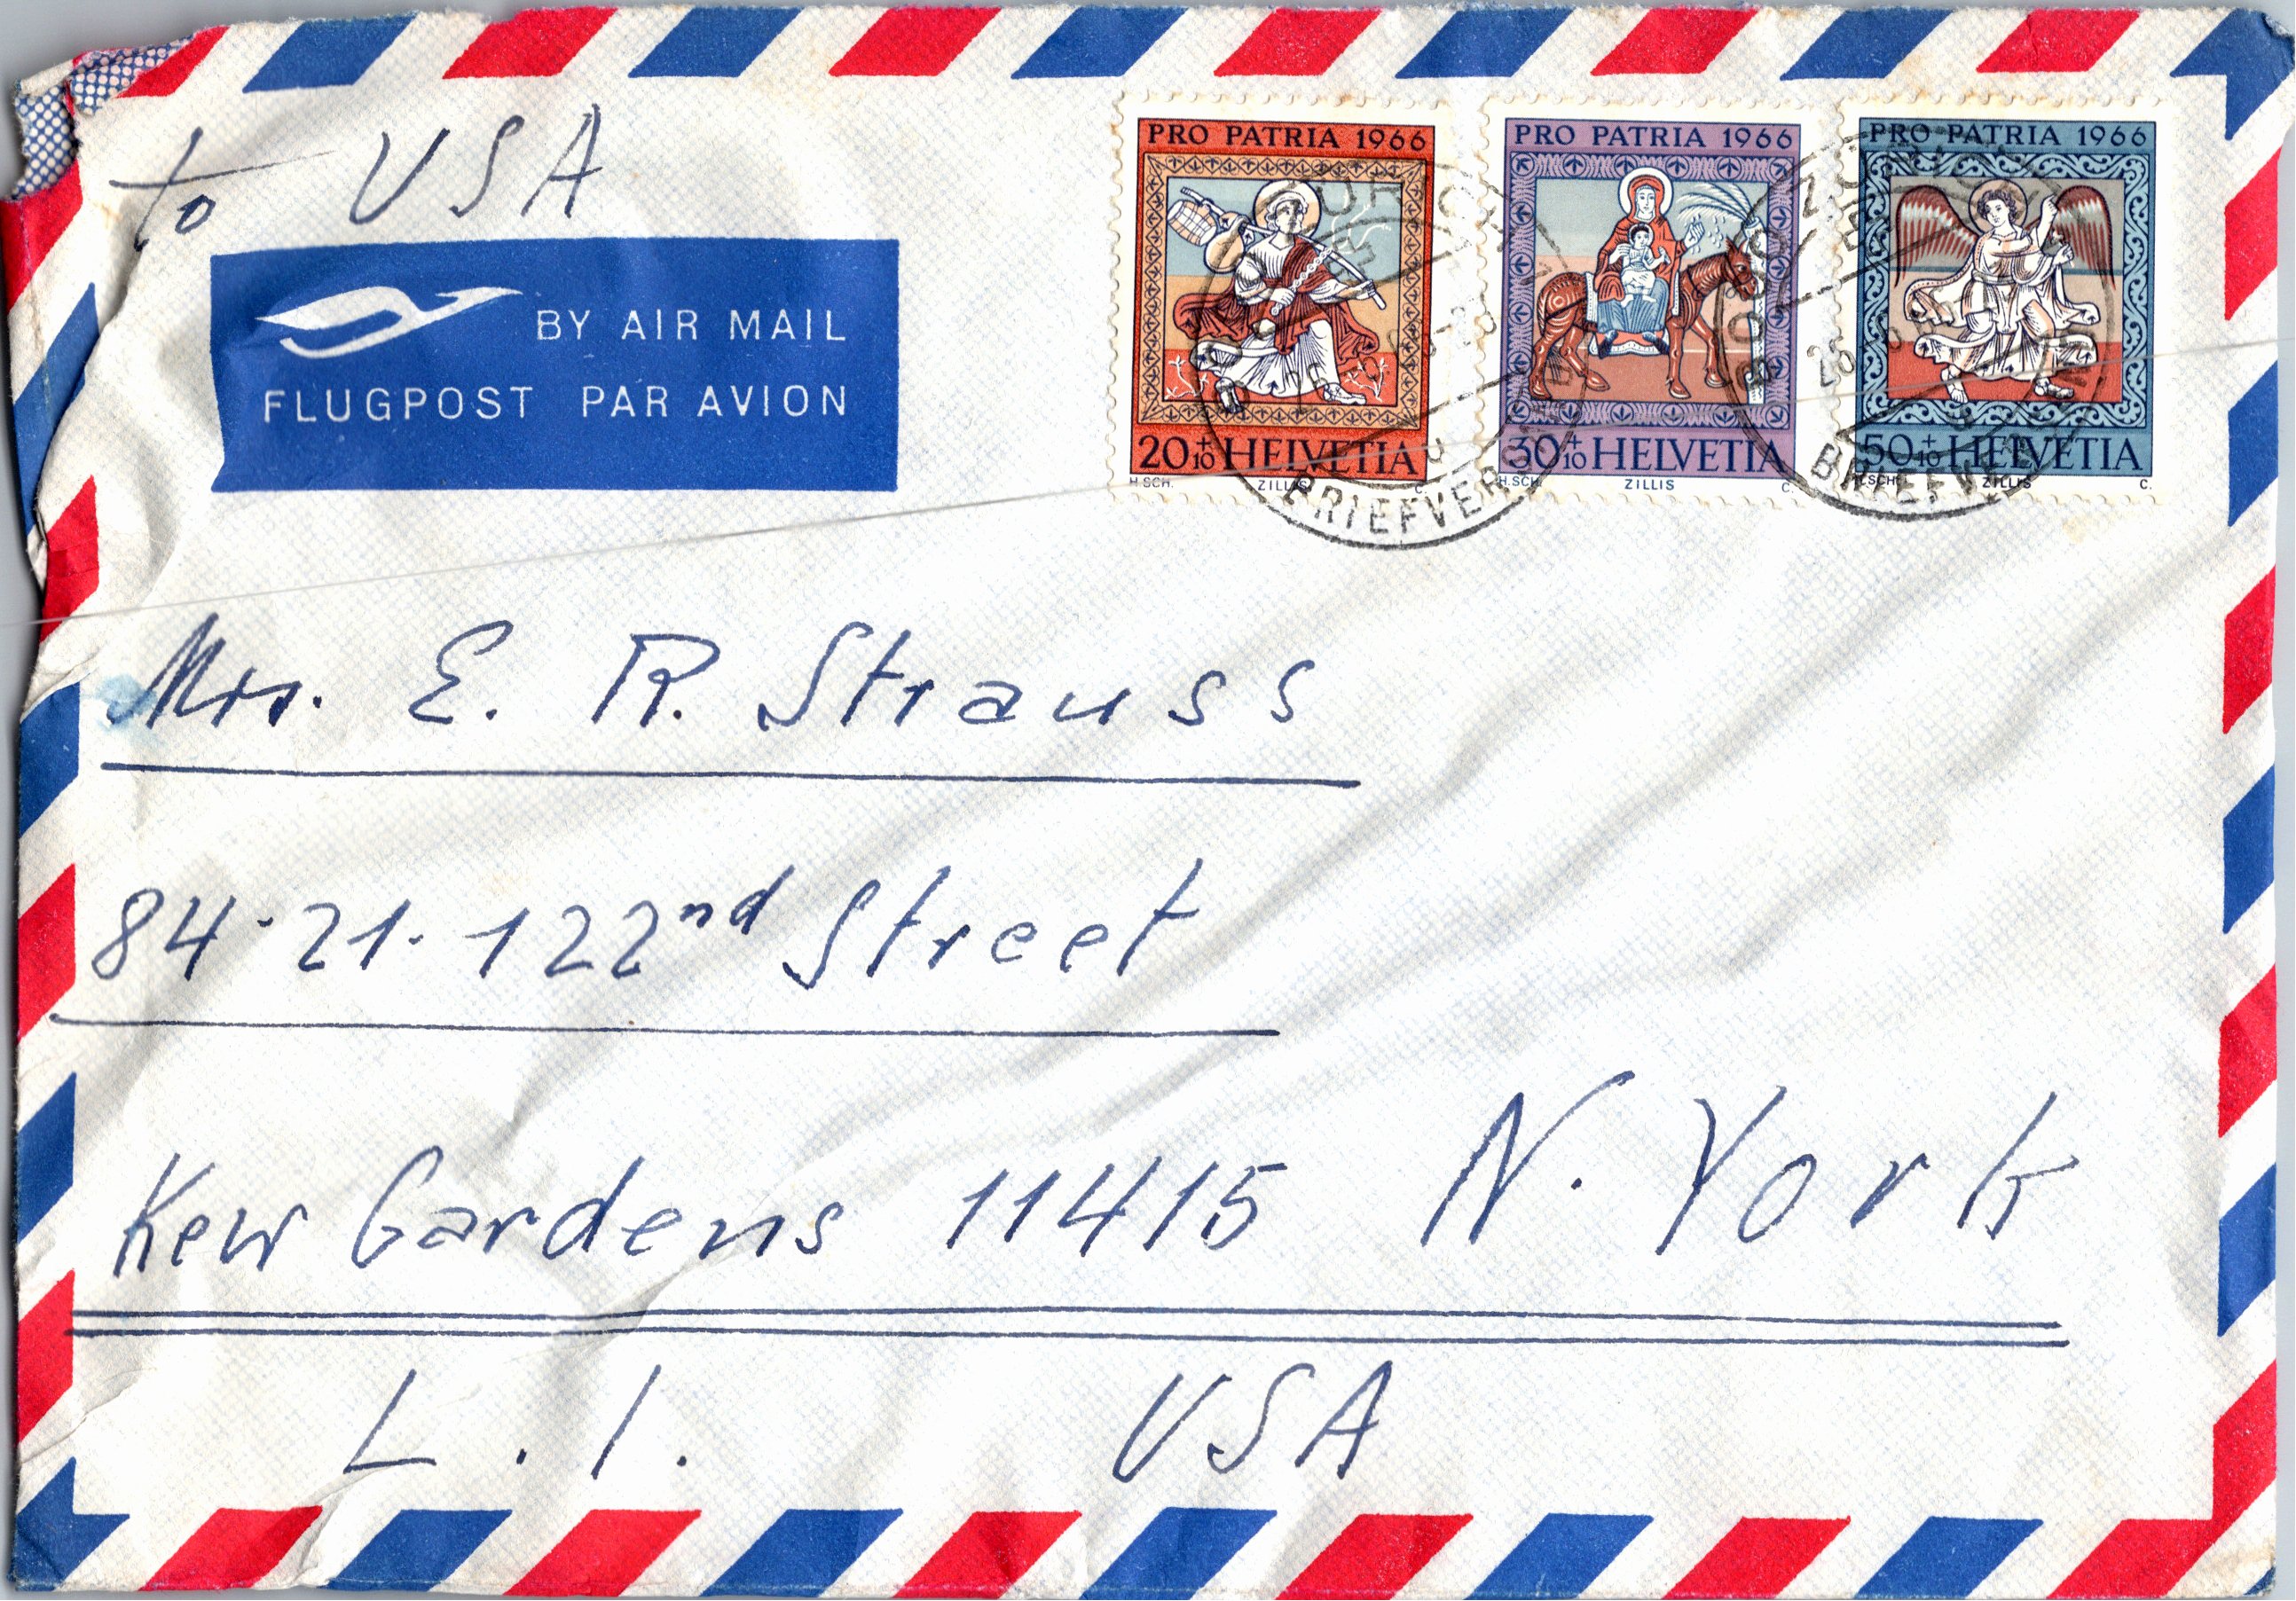 to USA
BY AIR MAIL
FLUGPOST PAR AVION
PRO PATRIA 1966
20+10 HELVETIA
H.SCH. ZILLIS C.
PRO PATRIA 1966
30+10 HELVETIA
H.SCH. ZILLIS C.
PRO PATRIA 1966
50+10 HELVETIA
H.SCH. ZILLIS C.
BRIEFVERS
BRIEFVE
Mrs. E. R. Strauss
84-21-122nd Street
Kew Gardens 11415 N. York
L.I. USA